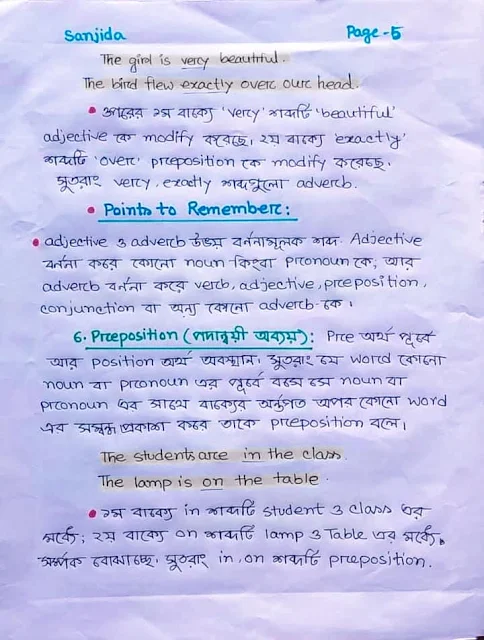 Sanjida Page-5
The girl is very beautiful.
The bird flew exactly over our head.
• উপরের ১ম বাক্যে 'very' শব্দটি 'beautiful'
adjective কে modify করেছে, ২য় বাক্যে 'exactly'
শব্দটি 'over' preposition কে modify করেছে.
সুতরাং very, exactly শব্দগুলো adverb.
• Points to Remember:
• adjective ও adverb উভয় বর্ননামূলক শব্দ. Adjective
বর্ননা করে কোনো noun কিংবা pronoun কে; আর
adverb বর্ননা করে verb, adjective, preposition,
conjunction বা অন্য কোনো adverb-কে।
6. Preposition (পদান্বয়ী অব্যয়): Pre অর্থ পূর্বে
আর position অর্থ অবস্থান. সুতরাং যে word কোনো
noun বা pronoun এর পূর্বে বসে সে noun বা
pronoun এর সাথে বাক্যের অর্ন্তগত অপর কোনো word
এর সম্বন্ধ প্রকাশ করে তাকে preposition বলে।
The students are in the class.
The lamp is on the table.
• ১ম বাক্যে in শব্দটি student ও class এর
মর্ধ্যে; ২য় বাক্যে on শব্দটি lamp ও Table এর মর্ধ্যে.
সর্ম্পক বোঝাচ্ছে. সুতরাং in, on শব্দটি preposition.